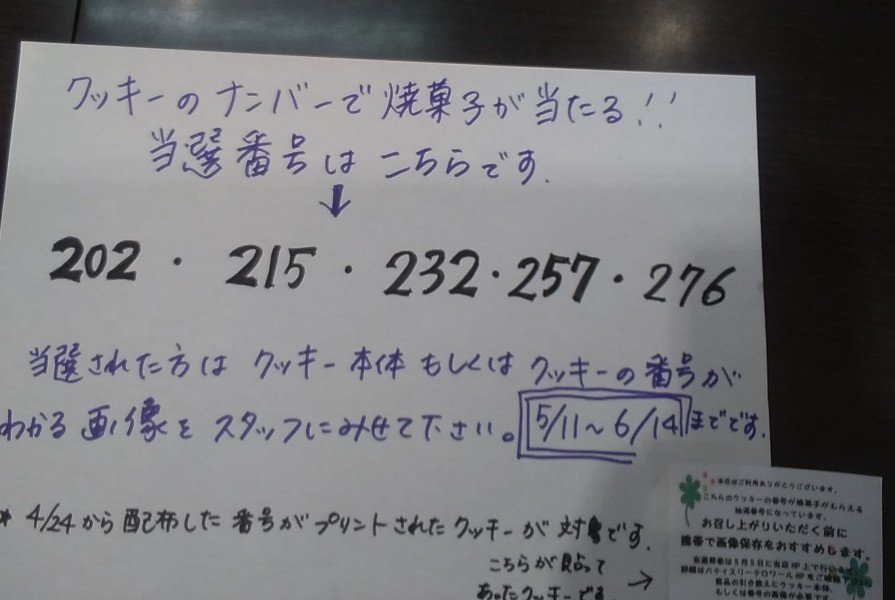 クッキーのナンバーで焼菓子が当たる!!
当選番号はこちらです.
↓
202・215・232・257・276
当選された方はクッキー本体もしくはクッキーの番号が
わかる画像をスタッフにみせて下さい。5/11〜6/14までです.
* 4/24から配布した番号がプリントされたクッキーが対象です.
こちらが貼って
あったクッキーです →
本日はご利用ありがとうございます。
こちらのクッキーの番号が焼菓子がもらえる
抽選番号になっています。
お召し上がりいただく前に
携帯で画像保存をおすすめします。
当選発表は5月5日に当店HP上で行い
詳細はパティスリーテロワールHPをご確認
商品の引き換えにクッキー本体、
もしくは番号の画像が必要です